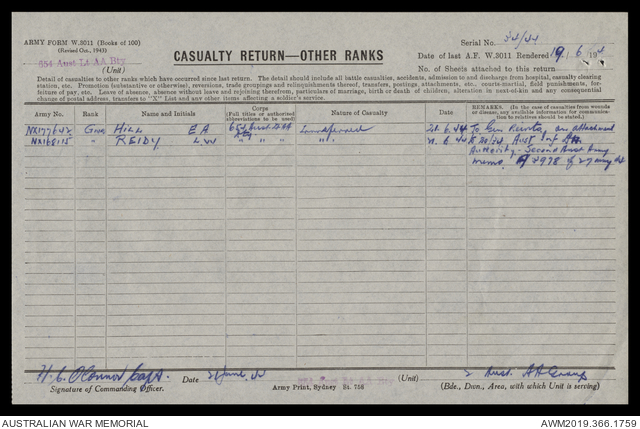 ARMY FORM W.3011 (Books of 100)
(Revised Oct., 1943)
654 Aust Lt AA Bty
(Unit)
CASUALTY RETURN—OTHER RANKS
Serial No. 34/44
Date of last A.F. W.3011 Rendered 19. 6. 194
No. of Sheets attached to this return
Detail of casualties to other ranks which have occurred since last return. The detail should include all battle casualties, accidents, admission to and discharge from hospital, casualty clearing
station, etc. Promotion (substantive or otherwise), reversions, trade groupings and relinquishments thereof, transfers, postings, attachments, etc., courts-martial, field punishments, for-
feiture of pay, etc. Leave of absence, absence without leave and rejoining therefrom, particulars of marriage, birth or death of children, alteration in next-of-kin and any consequential
change of postal address, transfers to "X" List and any other items affecting a soldier's service.
Army No. Rank Name and Initials Corps (Full titles or authorised abbreviations to be used) Nature of Casualty Date REMARKS. (In the case of casualties from wounds or disease, any available information for communication to relatives should be stated.)
NX177642 Gnr HILL E A 654 Aust Lt AA Transferred 21. 6. 44 To Gen Reinfts, on attachment
NX168115 " REIDY L W Bty " " " " 21. 6. 44 Aust Inf
Authority - Second Aust Army
memo. A 2978 of 27 May 44
H. C. O'Connor Capt. Date 21 June 44 (Unit) 2 Aust. AA Group
Signature of Commanding Officer. Army Print, Sydney St. 756 (Bde., Dvn., Area, with which Unit is serving)
AUSTRALIAN WAR MEMORIAL AWM2019.366.1759